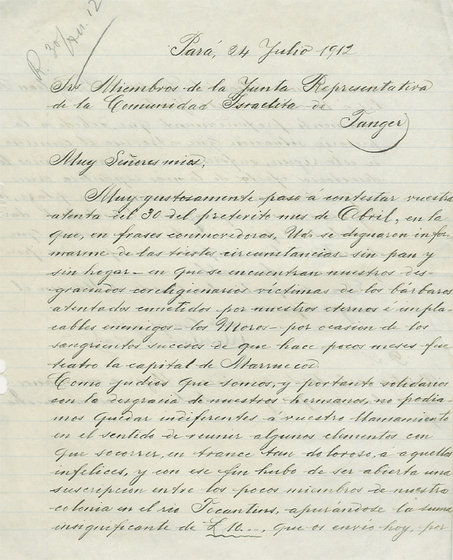 R. 30/VII.12
Pará, 24 Julio 1912
Srs Miembros de la Junta Representativa
de la Comunidad Israelita de
Tanger
Muy Señores mios,
Muy gustosamente paso á contestar vuestra
atenta del 30 del preterito mes de Abril, en la
que, en frases conmovedoras, Uds. se dignaron infor
marme de las tristes circunstancias - sin pan y
sin hogar - en que se encuentran nuestros des-
graciados coreligionarios víctimas de los bárbaros
atentados cometidos por nuestros eternos e impla-
cables enemigos - los Moros - por ocasion de los
sangrientos sucesos de que hace pocos meses fue
teatro la capital de Marruecos.
Como judíos que somos, y portanto solidarios
con la desgracia de nuestros hermanos, no podía-
mos quedar indiferentes á vuestro llamamiento
en el sentido de reunir algunos elementos con
que socorrer, en trance tan doloroso, a aquellos
infelices, y con ese fin hubo de ser abierta una
suscripcion entre los pocos miembros de nuestra
colonia en el rio Tocantins, apurándose la suma
insignificante de £ 16.-., que os envío hoy, por